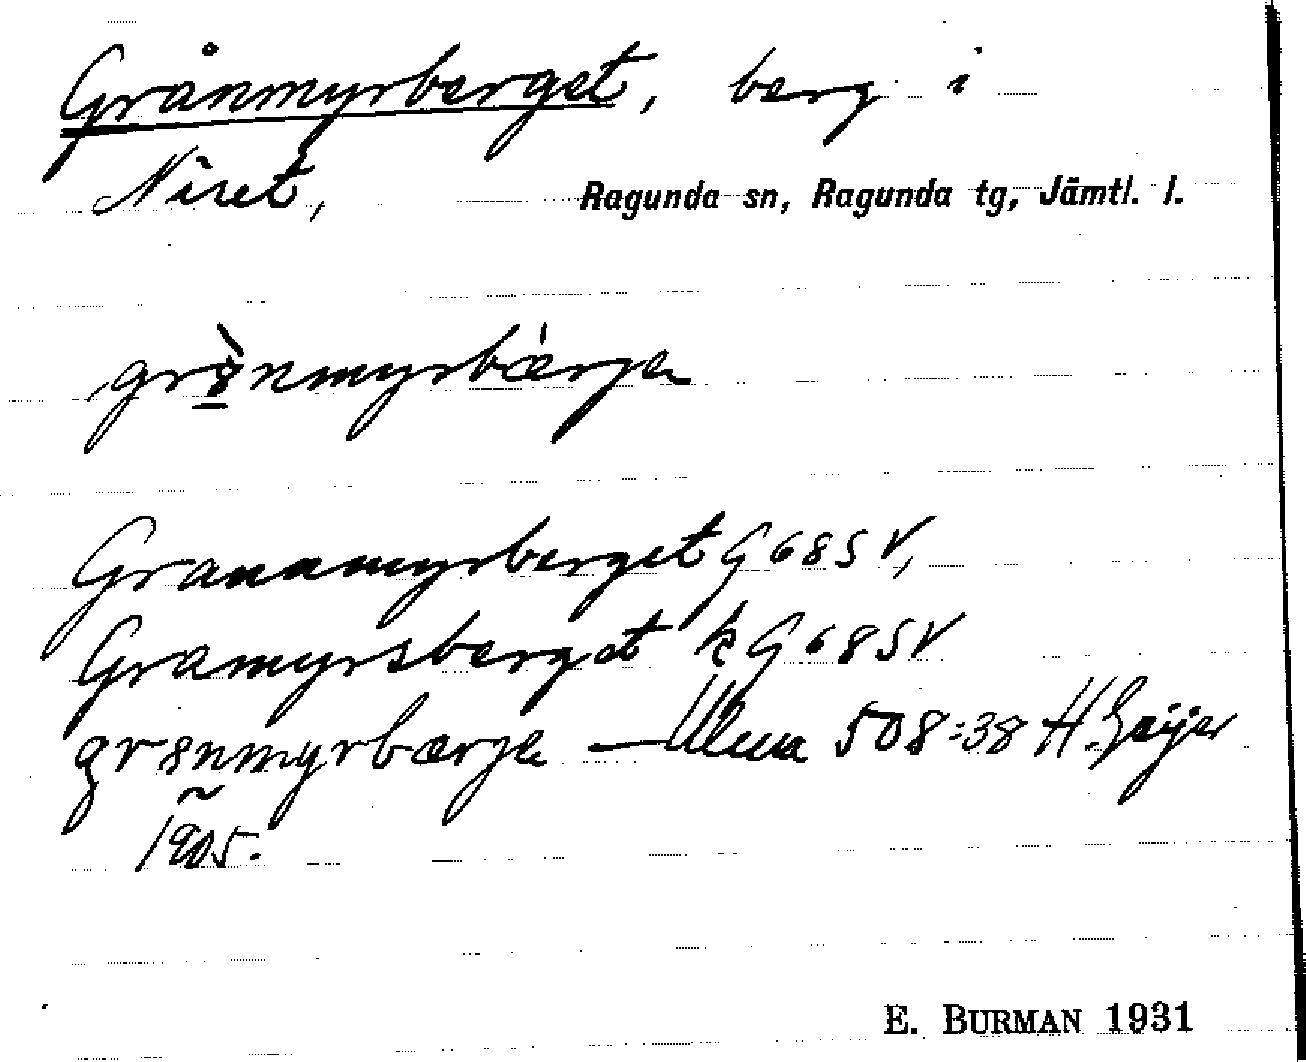 Grånmyrberget, berg i
Niset, Ragunda sn, Ragunda tg, Jämtl. l.
grånmyrbærja
Granamyrberget G 68 SV,
Gramyrsberget k G 68 SV
grånmyrbærja — Ulma 508:38 H. Geijer
1905.
E. BURMAN 1931